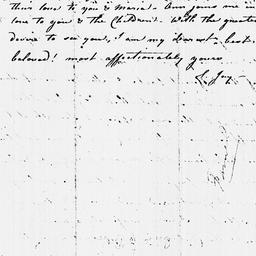 their love to you & Maria. Ann joins me in
love to you & the Children. With the greatest
desire to see you, I am my dearest, best
beloved! most affectionately yours
S. Jay